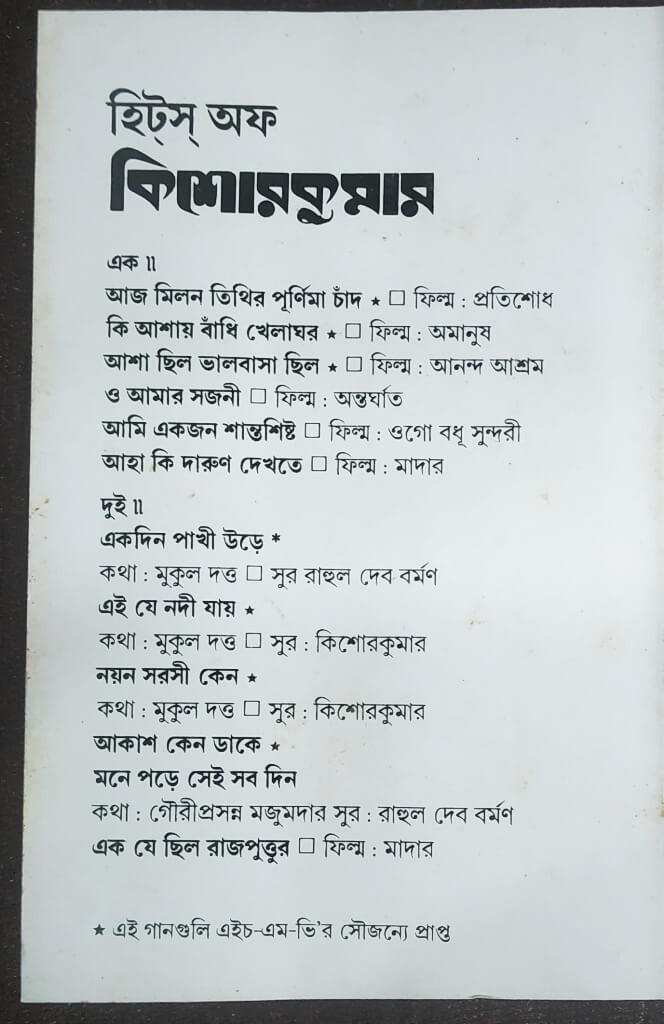 হিট্‌স্ অফ
কিশোরকুমার
এক ॥
আজ মিলন তিথির পূর্ণিমা চাঁদ ★ □ ফিল্ম : প্রতিশোধ
কি আশায় বাঁধি খেলাঘর ★ □ ফিল্ম : অমানুষ
আশা ছিল ভালবাসা ছিল ★ □ ফিল্ম : আনন্দ আশ্রম
ও আমার সজনী □ ফিল্ম : অন্তর্ঘাত
আমি একজন শান্তশিষ্ট □ ফিল্ম : ওগো বধূ সুন্দরী
আহা কি দারুণ দেখতে □ ফিল্ম : মাদার
দুই ॥
একদিন পাখী উড়ে *
কথা : মুকুল দত্ত □ সুর রাহুল দেব বর্মণ
এই যে নদী যায় ★
কথা : মুকুল দত্ত □ সুর : কিশোরকুমার
নয়ন সরসী কেন ★
কথা : মুকুল দত্ত □ সুর : কিশোরকুমার
আকাশ কেন ডাকে ★
মনে পড়ে সেই সব দিন
কথা : গৌরীপ্রসন্ন মজুমদার সুর : রাহুল দেব বর্মণ
এক যে ছিল রাজপুত্তুর □ ফিল্ম : মাদার
★ এই গানগুলি এইচ-এম-ভি'র সৌজন্যে প্রাপ্ত